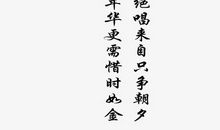 绝唱来自只争朝夕
年华更需惜时如金